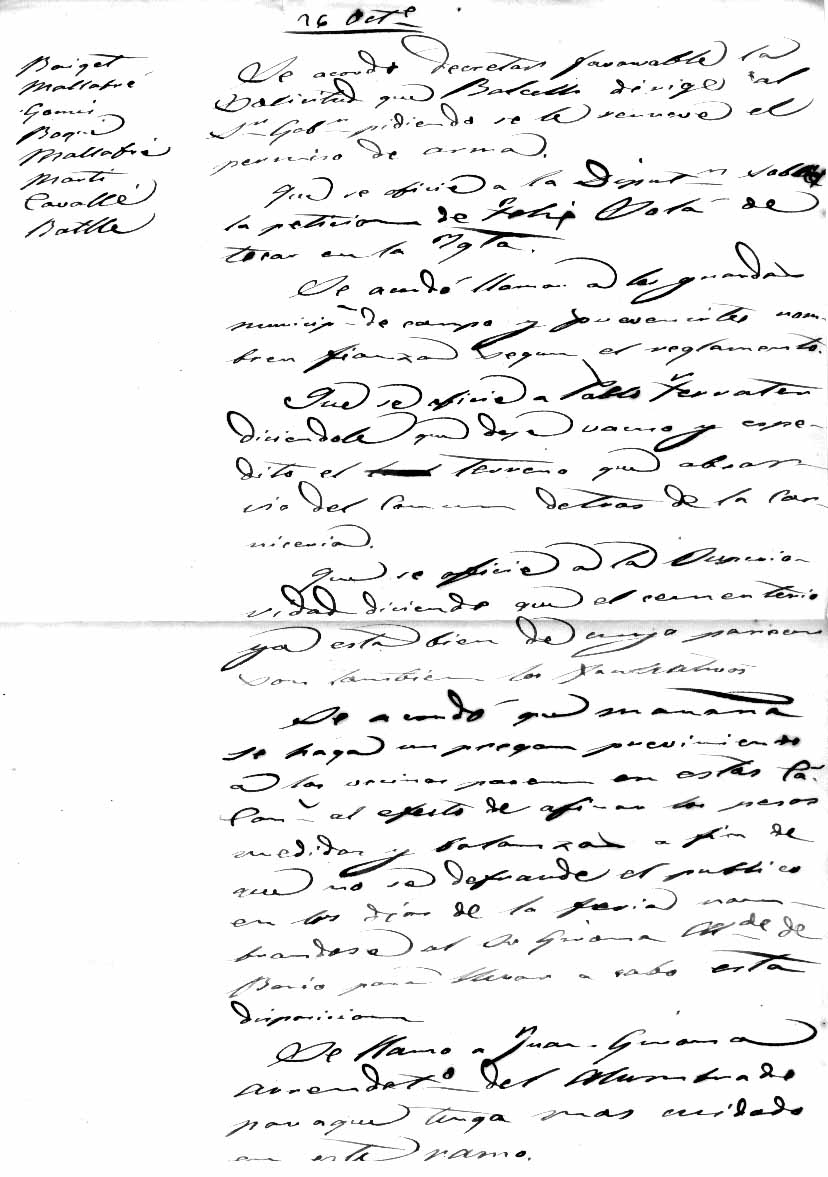 26 Oct.e
Baiget
Mallafré
Gomis
Boqué
Mallafré
Marti
Cavallé
Batlle
Se acordó decretar favorable la
solicitud que Balcells dirige al
Sr. Gobr. pidiendo se le renueve el
permiso de arma.
Que se oficie a la Diput.n sobre
la peticion de Felix Solá de
tocar en la Ygta.
Se acordó llamar a los guardas
municip.s de campo y prevenirles nom-
bren fianza segun el reglamento.
Que se oficie a Pablo Ferrater
diciendole que deje vacuo y espe-
dito el terreno que absor-
vio del Comun detras de la Car-
niceria.
Que se oficie a la Superio-
ridad diciendo que el cementerio
ya esta bien de cuyo parecer
son tambien los facultativos
Se acordó que mañana
se haga un pregon previniendo
a los vecinos pasen en estas Ca.
Con.s al efecto de afinar los pesos
medidas y balanzas a fin de
que no se defraude el publico
en los dias de la feria nom-
brandose al Sr Girona Al.de de
Bario para llevar a cabo esta
disposicion
Se llamo a Juan Girona
arrendat.o del Alumbrado
para que tenga mas cuidado
en este ramo.